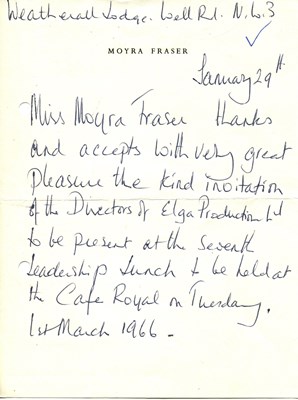 Weatherall Lodge. Well Rd. N.W.3
MOYRA FRASER
January 29th
Miss Moyra Fraser thanks
and accepts with very great
pleasure the kind invitation
of the Directors of Elga Production Ltd
to be present at the Seventh
Leadership Lunch to be held at
the Cafe Royal on Tuesday,
1st March 1966 -